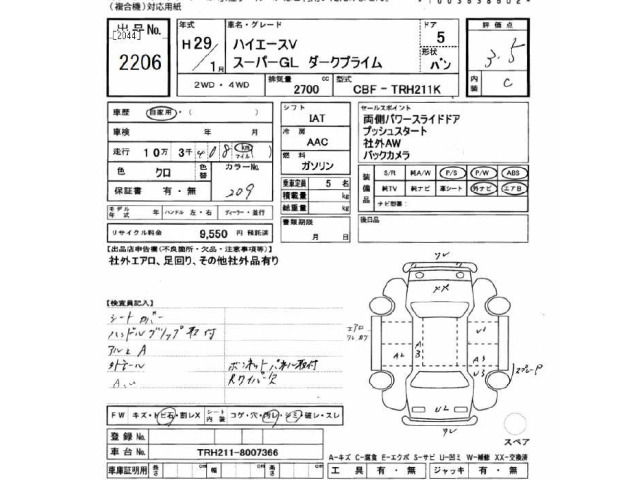 (複合機)対応用紙
出品No.
[2044]
2206
年式 車名・グレード ドア 評価点
H29/1月 ハイエースV 5 3.5
スーパーGL ダークプライム 形状 バン
2WD・4WD 排気量 2700 cc 型式 CBF-TRH211K 内装 C
車歴 自家用・
車検 年 月
走行 10万 3千 408 km マイル
色 クロ 色替 カラーNo. 209
保証書 有・無
モデル年式 年 ハンドル 左・右 ディーラー・並行
リサイクル料金 9,550 円 預託済
シフト IAT
冷房 AAC
燃料 ガソリン
乗車定員 5 名
積載量 kg
総重量 kg
書類期限
月 日
セールスポイント
両側パワースライドドア
プッシュスタート
社外AW
バックカメラ
装備品 S/R 純A/W P/S P/W ABS
純TV 純ナビ 革シート 外ナビ エアB
ナビ型番:
後日品
【出品店申告書(不良箇所・欠品・注意事項等)】
社外エアロ、足回り、その他社外品有り
【検査員記入】
シートカバー
ハンドルグリップ取付
アルミA
ボンネットパネル取付
Rワイパー欠
FW キズ・トビ石・割レX シート内装 コゲ・穴・汚レ・シミ・破レ・スレ
登録No.
車台No. TRH211-8007366
車庫証明用 長さ cm 幅 cm 高さ cm
スペア
A-キズ C-腐食 E-エクボ S-サビ U-凹ミ W-補修 XX-交換済
工具 有・無 ジャッキ 有・無